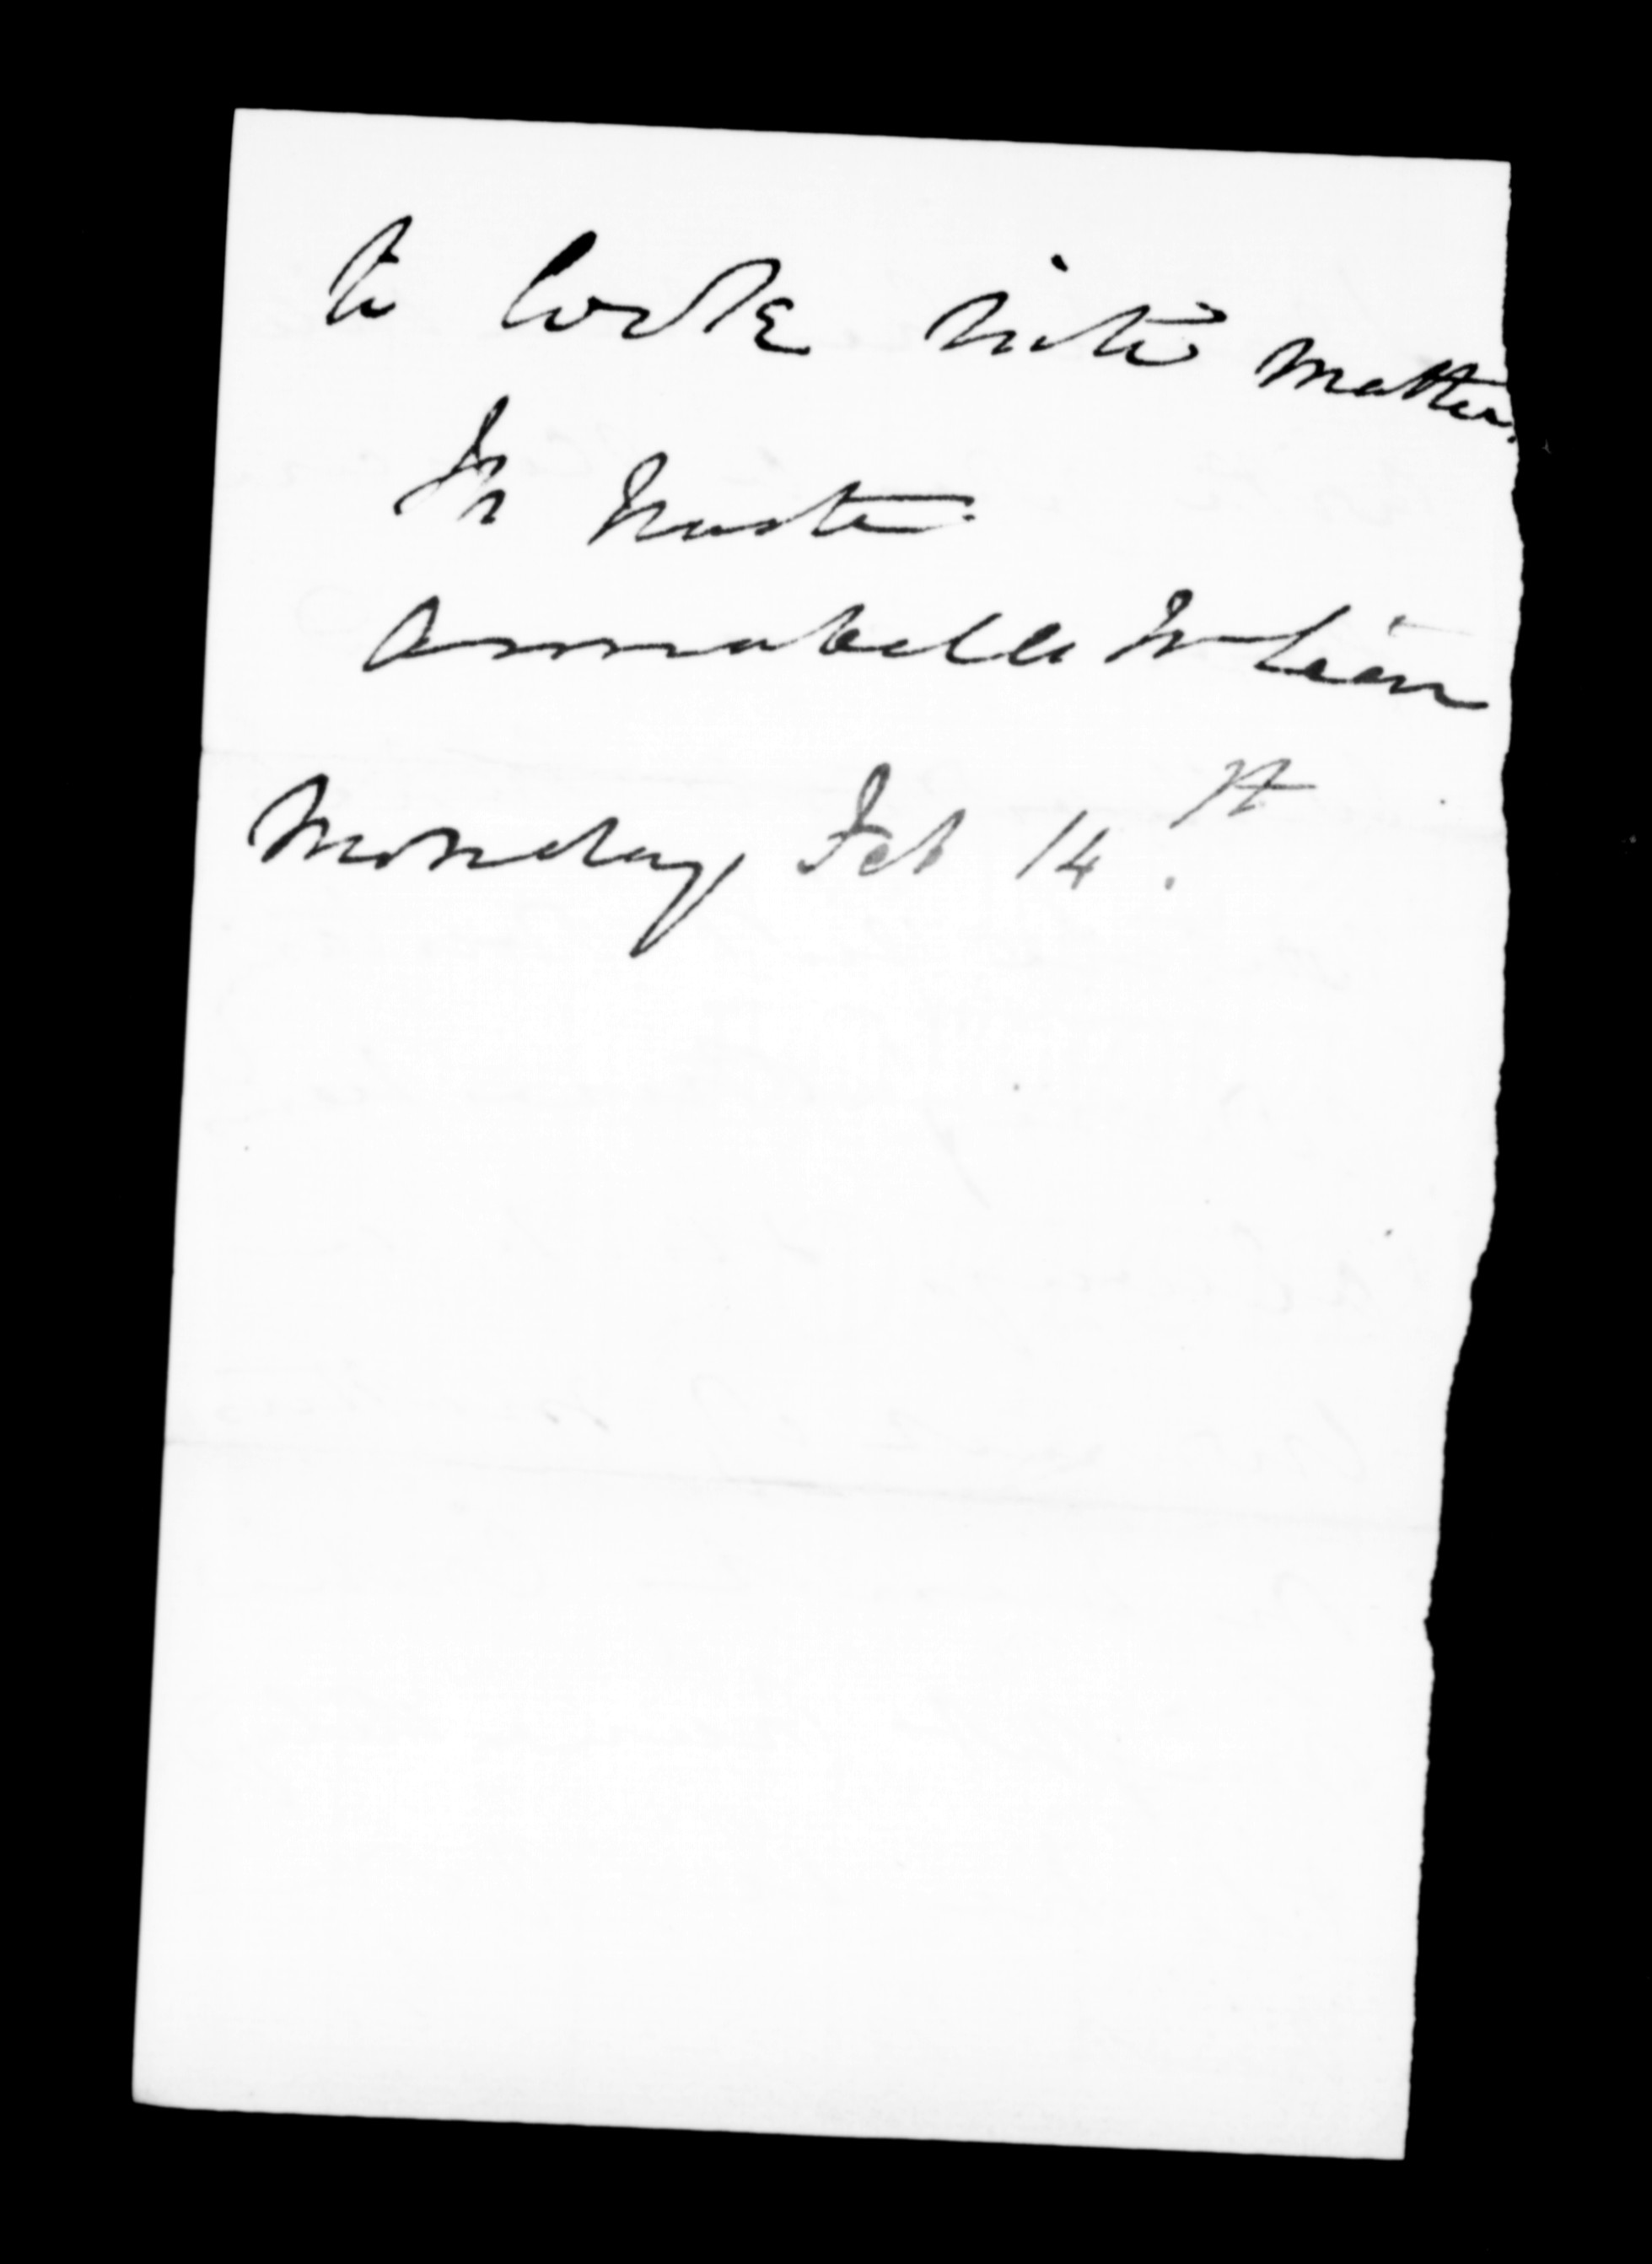 to look into matter.
In haste
Annabella McLean
Monday Feb 14.th